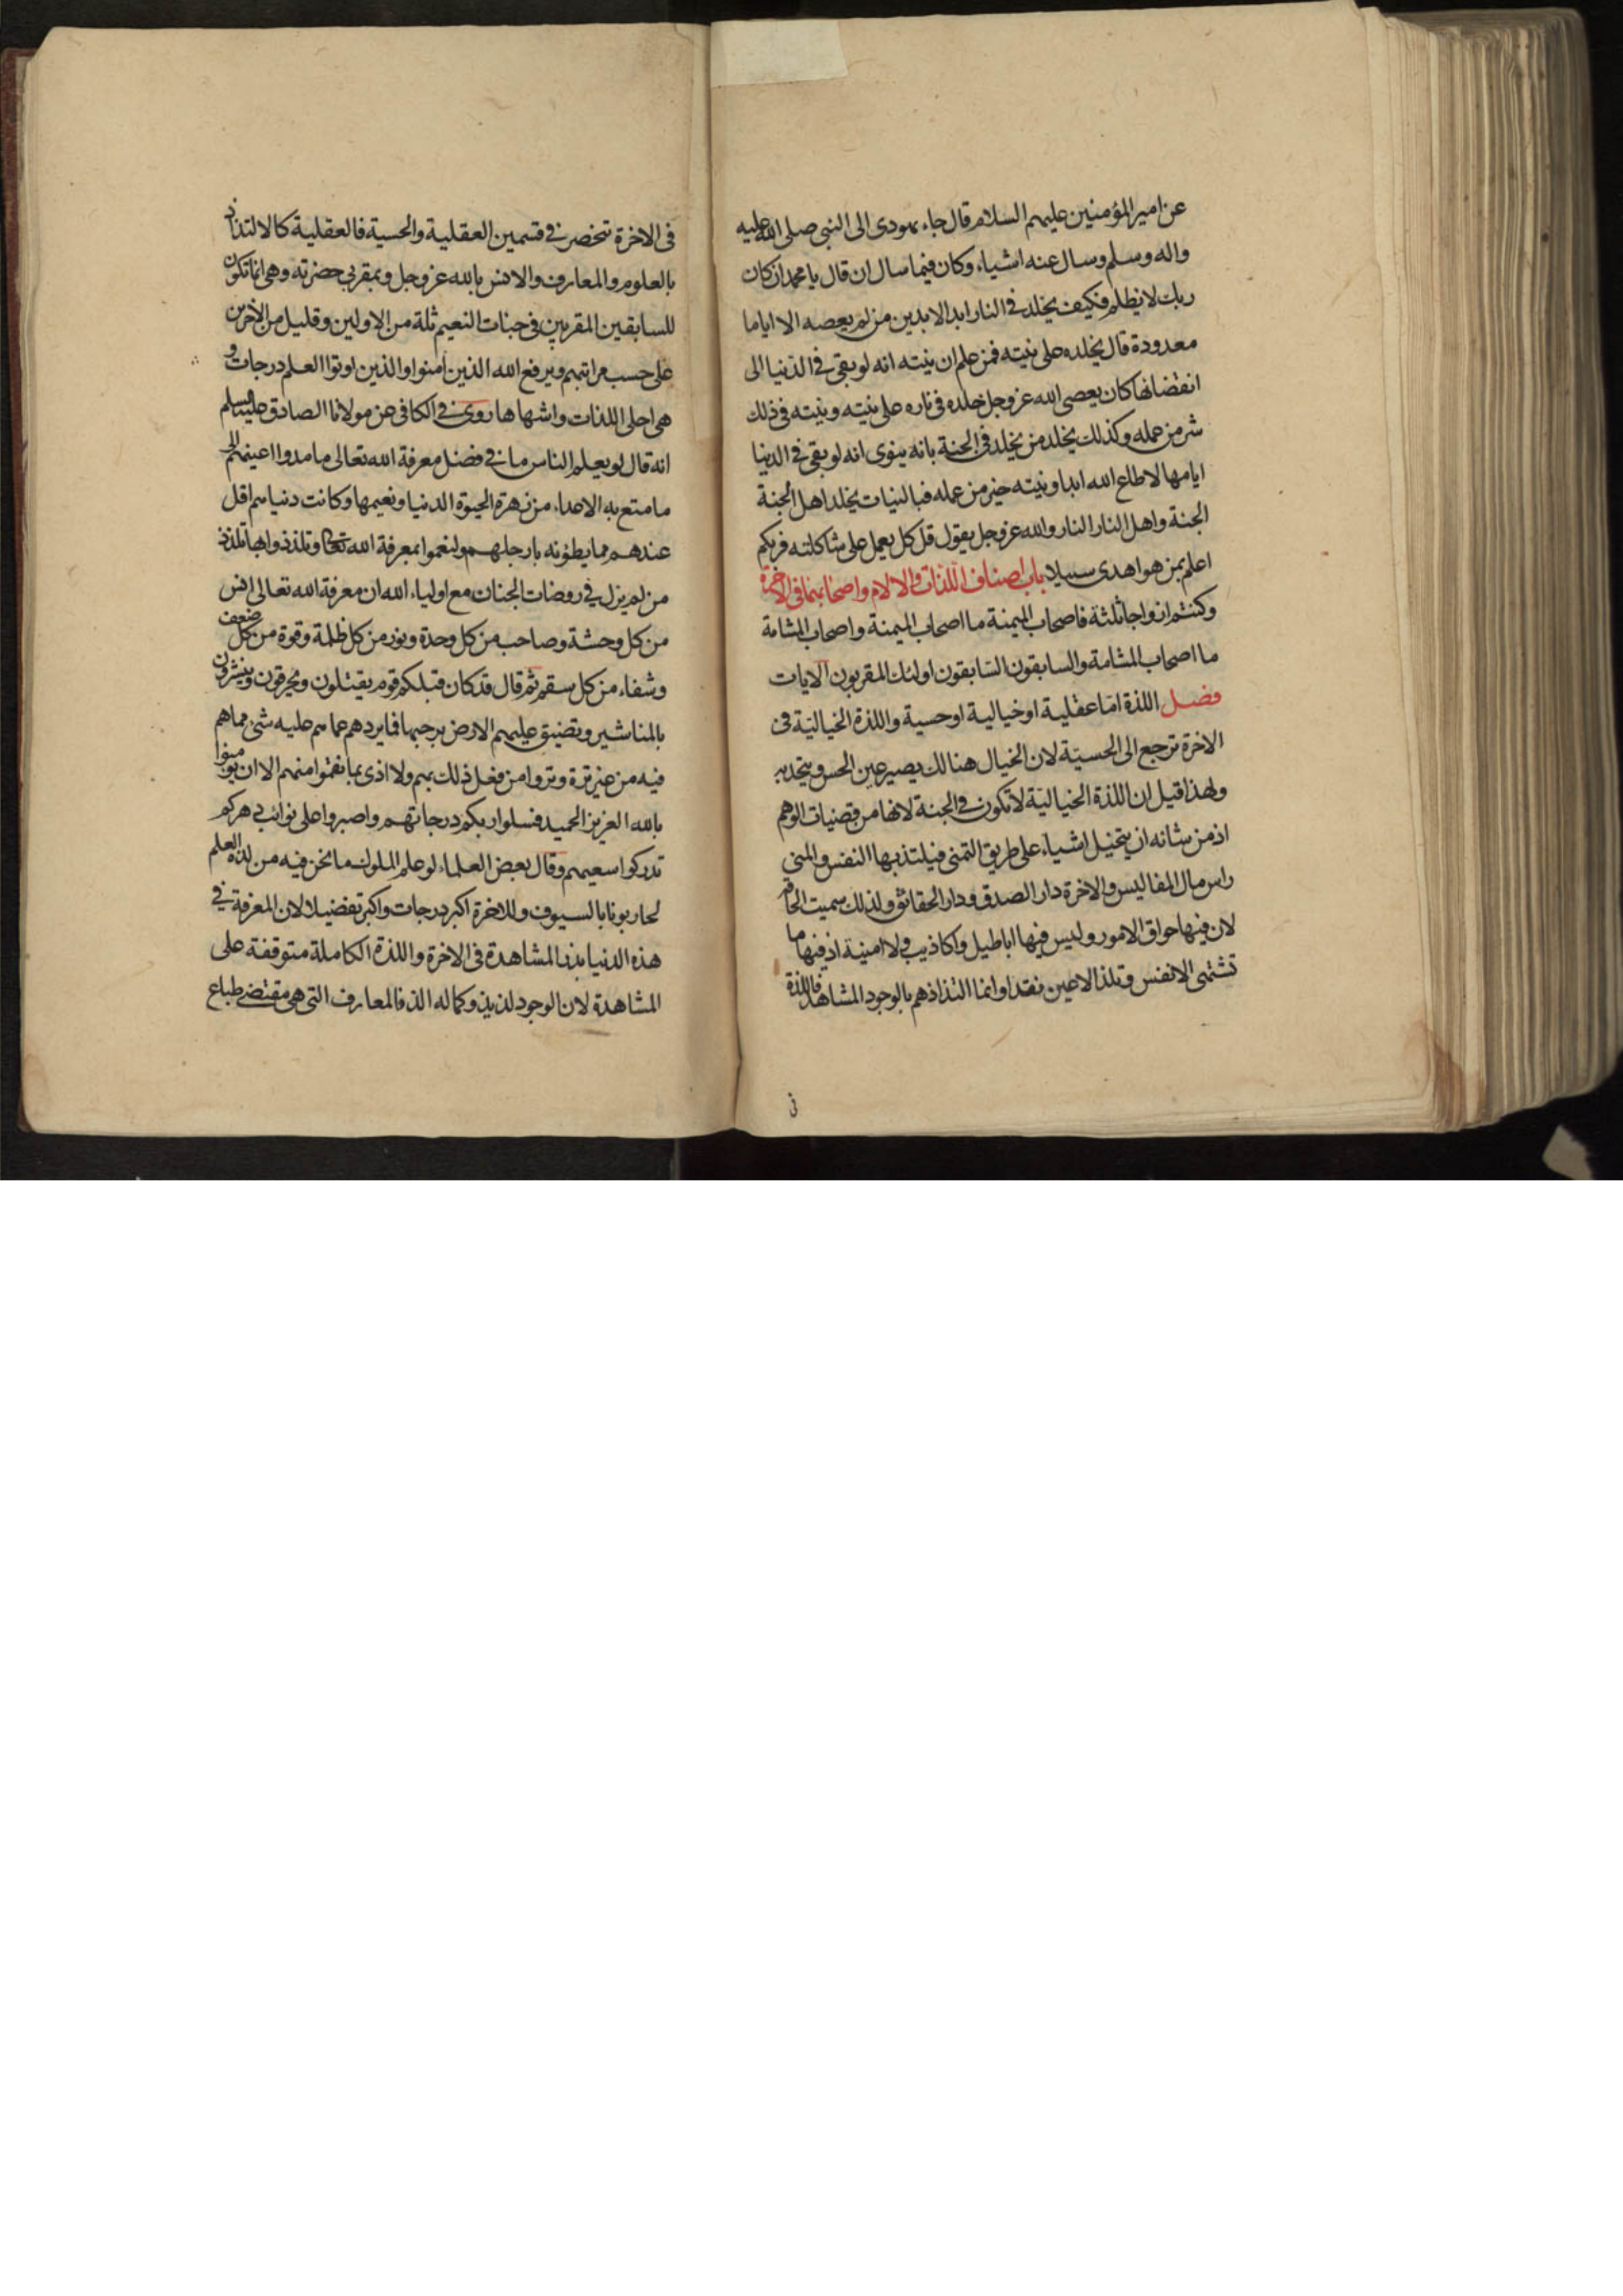 عن امير المؤمنين عليهم السلام قال جاء يهودى الى النبى صلى الله عليه
واله وسلم وسال عنه اشياء وكان فيما سال ان قال يا محمد ان كان
ربك لا يظلم فكيف يخلد فى النار ابد الابدين من لم يعصه الا اياما
معدودة قال يخلده على نيته فمن علم ان نيته انه لو بقى فى الدنيا الى
انقضائها كان يعصى الله عز وجل خلده فى ناره على نيته ونيته فى ذلك
شر من عمله وكذلك يخلد من يخلد فى الجنة بانه ينوى انه لو بقى فى الدنيا
ايامها لاطاع الله ابدا ونيته خير من عمله فبالنيات يخلد اهل الجنة
الجنة واهل النار النار والله عز وجل يقول قل كل يعمل على شاكلته فربكم
اعلم بمن هو اهدى سبيلا باب اصناف اللذات والالام واصحابهما فى الاخرة
وكنتم ازواجا ثلثة فاصحاب الميمنة ما اصحاب الميمنة واصحاب المشامة
ما اصحاب المشامة والسابقون السابقون اولئك المقربون الايات
فصل اللذة اما عقلية او خيالية او حسية واللذة الخيالية فى
الاخرة ترجع الى الحسية لان الخيال هنالك يصير عين الحس ويتحد به
ولهذا قيل ان اللذة الخيالية لا تكون فى الجنة لانها من قضيات الوهم
اذ من شانه ان يتخيل اشياء على طريق التمنى فيلتذ بها النفس والمنى
راس مال المفاليس والاخرة دار الصدق ودار الحقائق ولذلك سميت الحاقة
لان فيها حواق الامور وليس فيها اباطيل واكاذيب ولا امنية اذ فيها ما
تشتهى الانفس وتلذ الاعين نقدا وانما التذاذهم بالوجود المشاهد فاللذة
فى
فى الاخرة تنحصر فى قسمين العقلية والحسية فالعقلية كالالتذاذ
بالعلوم والمعارف والانس بالله عز وجل وبمقربى حضرته وهى انما تكون
للسابقين المقربين فى جنات النعيم ثلة من الاولين وقليل من الاخرين
على حسب مراتبهم ويرفع الله الذين امنوا والذين اوتوا العلم درجات و
هى احلى اللذات واشهاها روى فى الكافى عن مولانا الصادق عليه السلم
انه قال لو يعلم الناس ما فى فضل معرفة الله تعالى ما مدوا اعينهم الى
ما متع به الاعداء من زهرة الحيوة الدنيا ونعيمها وكانت دنياهم اقل
عندهم مما يطؤنه بارجلهم ولنعموا بمعرفة الله تعالى وتلذذوا بها تلذذ
من لم يزل فى روضات الجنان مع اولياء الله ان معرفة الله تعالى انس
من كل وحشة وصاحب من كل وحدة ونور من كل ظلمة وقوة من كل ضعف
وشفاء من كل سقم ثم قال قد كان قبلكم قوم يقتلون ويحرقون وينشرون
بالمناشير وتضيق عليهم الارض برحبها فما يردهم عما هم عليه شئ مما هم
فيه من غير ترة وتروا من فعل ذلك بهم ولا اذى بما نقموا منهم الا ان يومنوا
بالله العزيز الحميد فسلوا ربكم درجاتهم واصبروا على نوائب دهركم
تدركوا سعيهم وقال بعض العلماء لو علم الملوك ما نحن فيه من لذة العلم
لحاربونا بالسيوف وللاخرة اكبر درجات واكبر تفضيلا لان المعرفة فى
هذه الدنيا بذر المشاهدة فى الاخرة واللذة الكاملة متوقفة على
المشاهدة لان الوجود لذيذ وكماله الذ فالمعارف التى هى مقتضى طباع